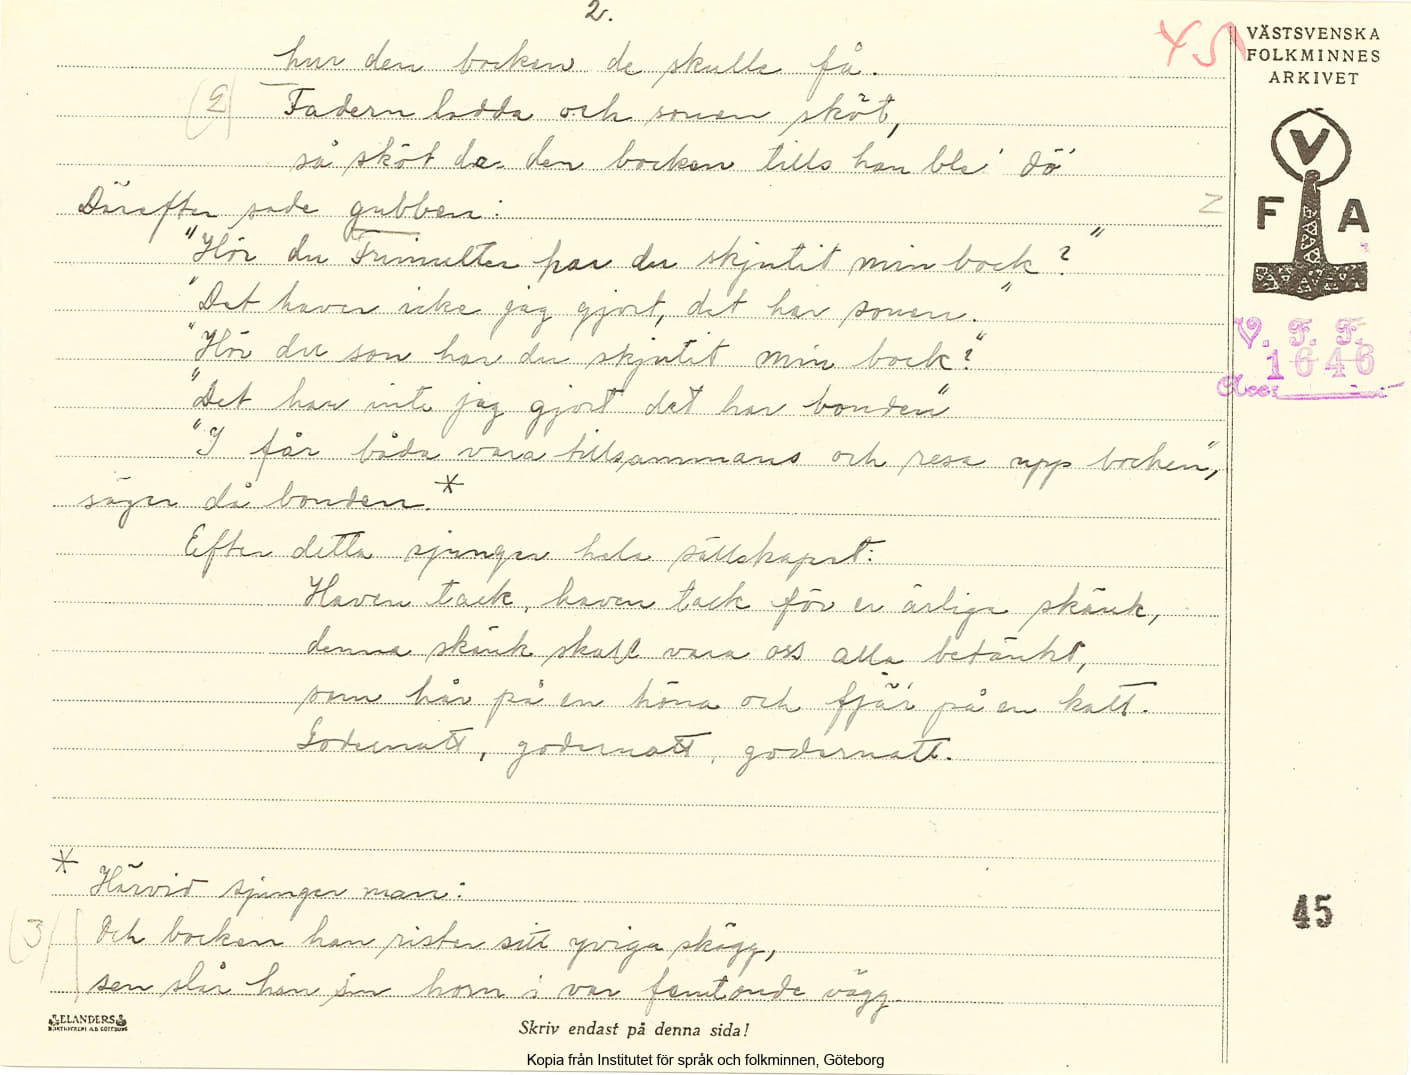 2.
45
VÄSTSVENSKA
FOLKMINNES
ARKIVET
hur den bocken de skulle få.
(2) Fadern ladda och sonen sköt,
så sköt de den bocken tills han ble' dö'
Därefter sade gubben:
Z
V
F A
"Hör du Frimulten har du skjutit min bock?"
"Det haver icke jag gjort, det har sonen."
V. F. F.
1646
Acc:
"Hör du son har du skjutit min bock?"
"Det har inte jag gjort det har bonden"
"I får båda vara tillsammans och resa upp bocken",
säger då bonden.*
Efter detta sjunger hela sällskapet:
Haven tack, haven tack för er ärliga skänk,
denna skänk skall vara oss alla betänkt,
som hår på en höna och fjä'r på en katt.
Godernatt, godernatt, godernatt.
* Härvid sjunger man:
45
(3) Och bocken han rister sitt yviga skägg,
sen slår han sin horn i var femtonde vägg
ELANDERS
BOKTRYCKERI A.B. GÖTEBORG
Skriv endast på denna sida!
Kopia från Institutet för språk och folkminnen, Göteborg